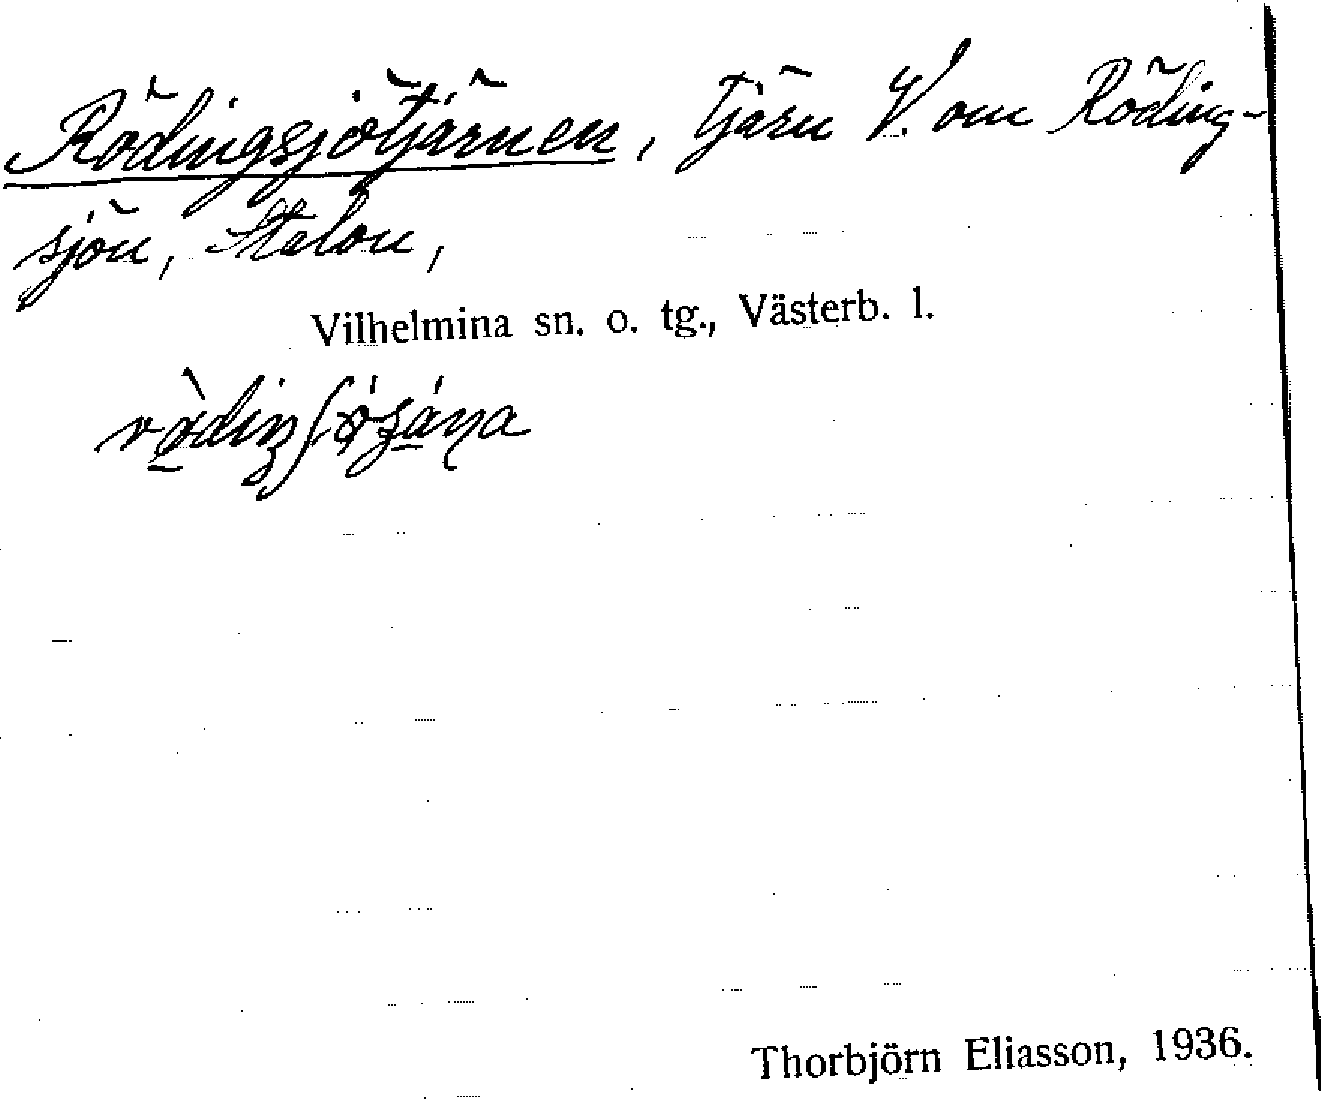 Rödingsjötjärnen, tjärn V. om Röding-
sjön, Stalon,
Vilhelmina sn. o. tg., Västerb. l.
Thorbjörn Eliasson, 1936.